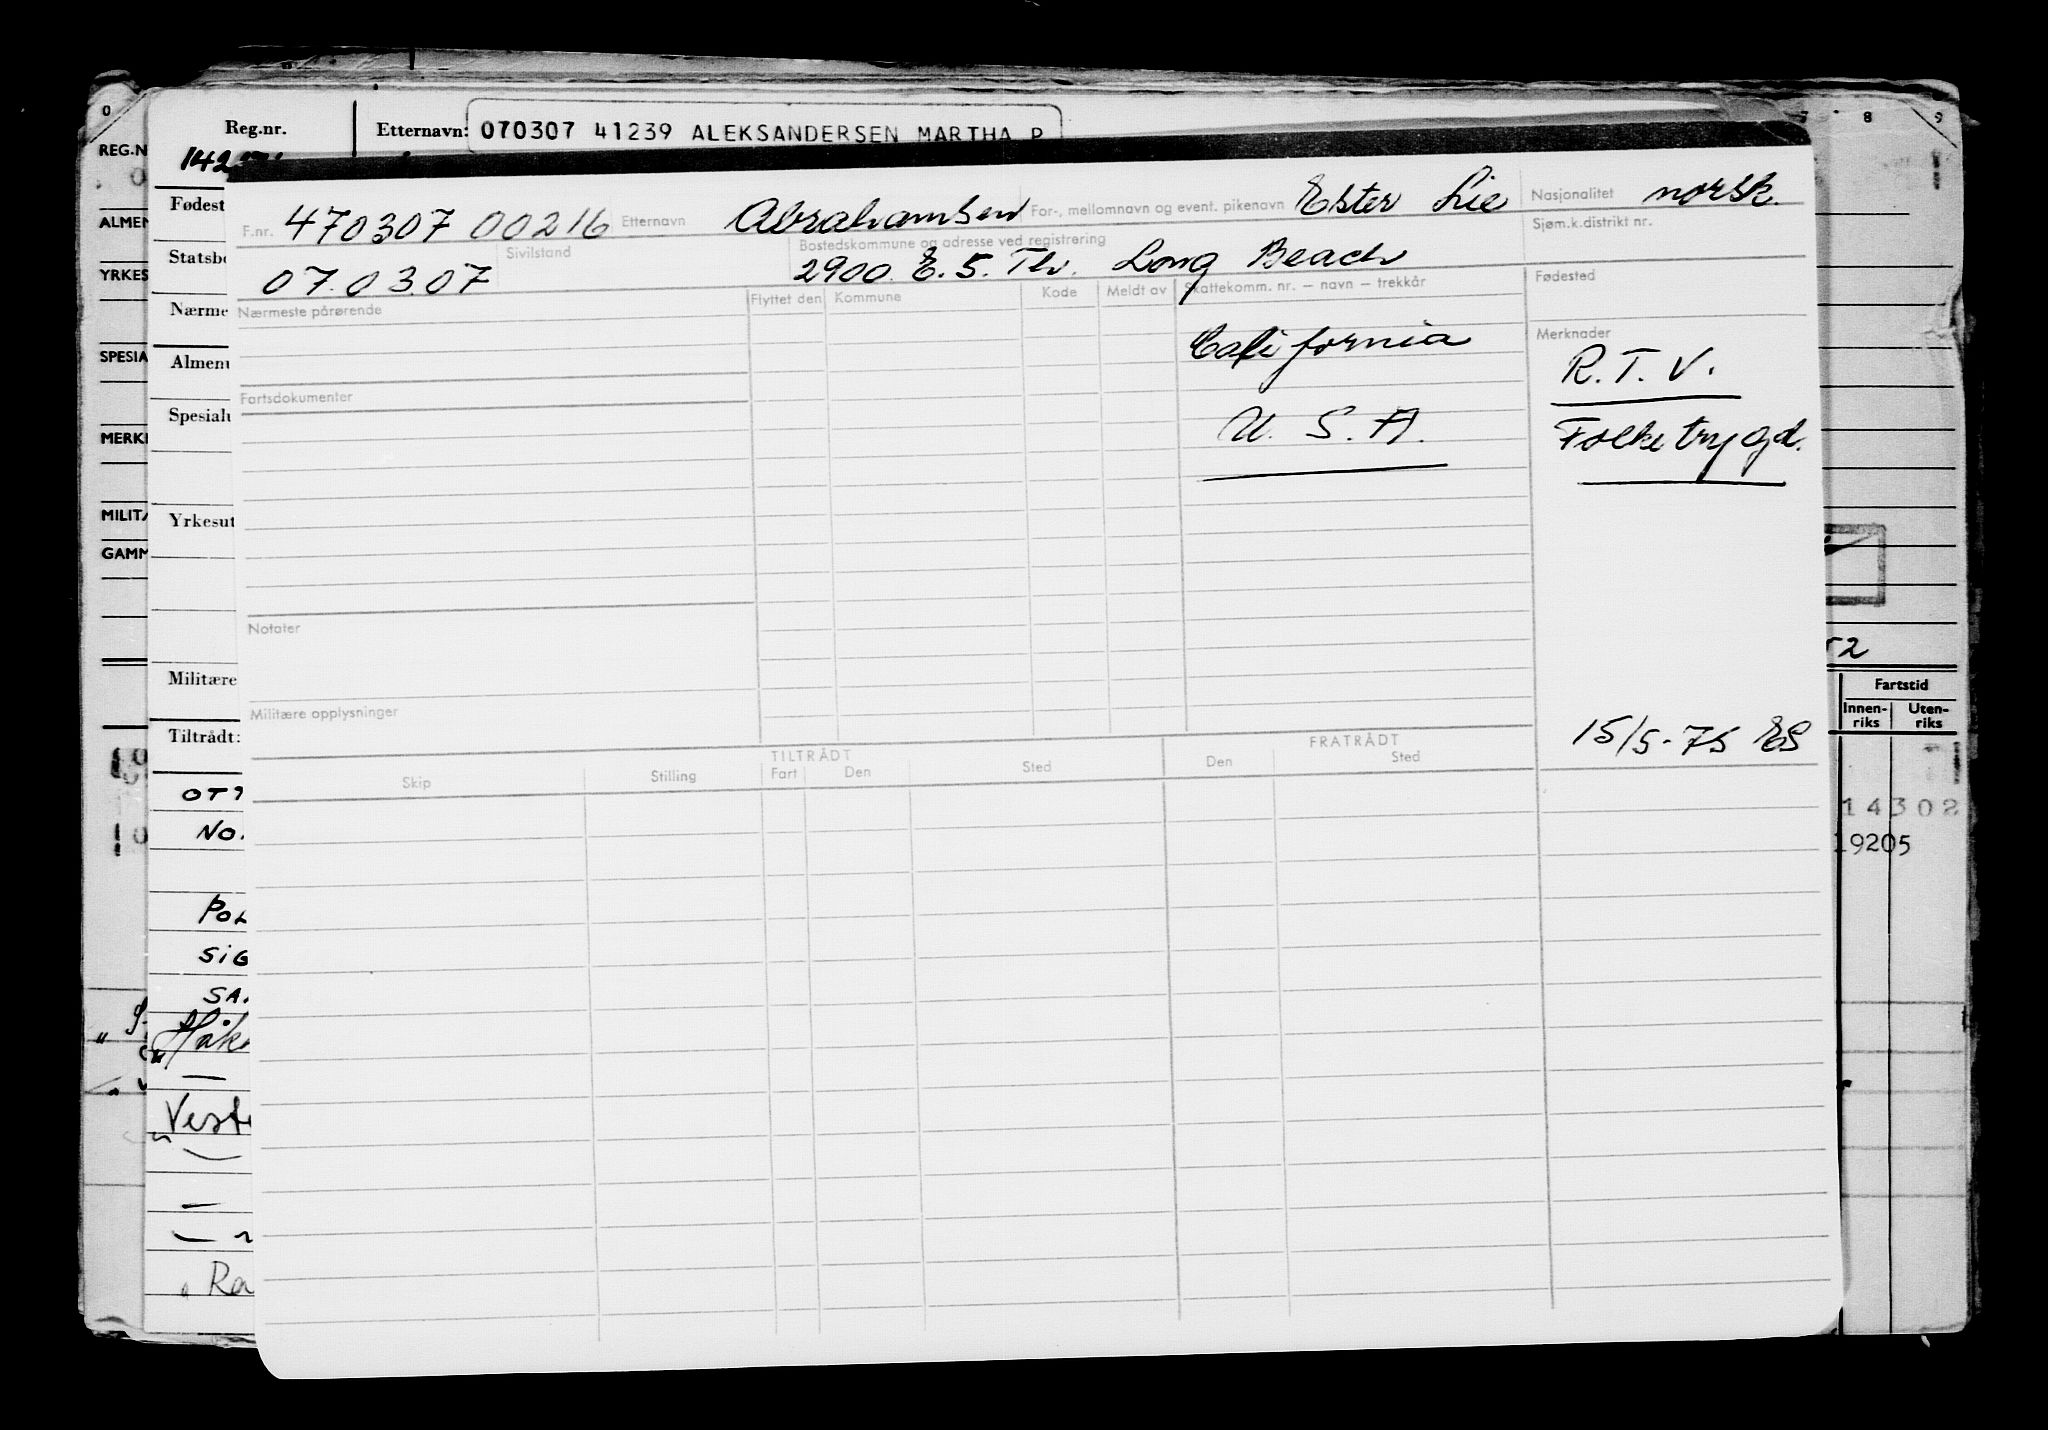 0 8 9
Reg.nr. Etternavn: 070307 41239 ALEKSANDERSEN MARTHA P
REG.N
ALMEN
YRKES
SPESIA
MERK
MILIT
GAMM
Fødest
Statsbo
Nærme
Almen
Spesialu
Yrkesut
Militære
Tiltrådt:
OTT
NO.
POL
SIG
SA.
Håk
Veste
Ra
F.nr. 470307 00216 Etternavn Abrahamsen For-, mellomnavn og event. pikenavn Ester Lie Nasjonalitet norsk.
07.03.07 Sivilstand Bostedskommune og adresse ved registrering 2900. E. 5. Th. Long Beach Sjøm.k.distrikt nr.
Nærmeste pårørende Flyttet den Kommune Kode Meldt av Skattekomm. nr. – navn – trekkår Fødested
California Merknader
R.T.V.
Fartsdokumenter
U. S. A. Folketrygd.
Notater
Militære opplysninger
15/5-75 ES
TILTRÅDT FRATRÅDT
Skip Stilling Fart Den Sted Den Sted
52
Fartstid
Innen-riks Uten-riks
14302
19205